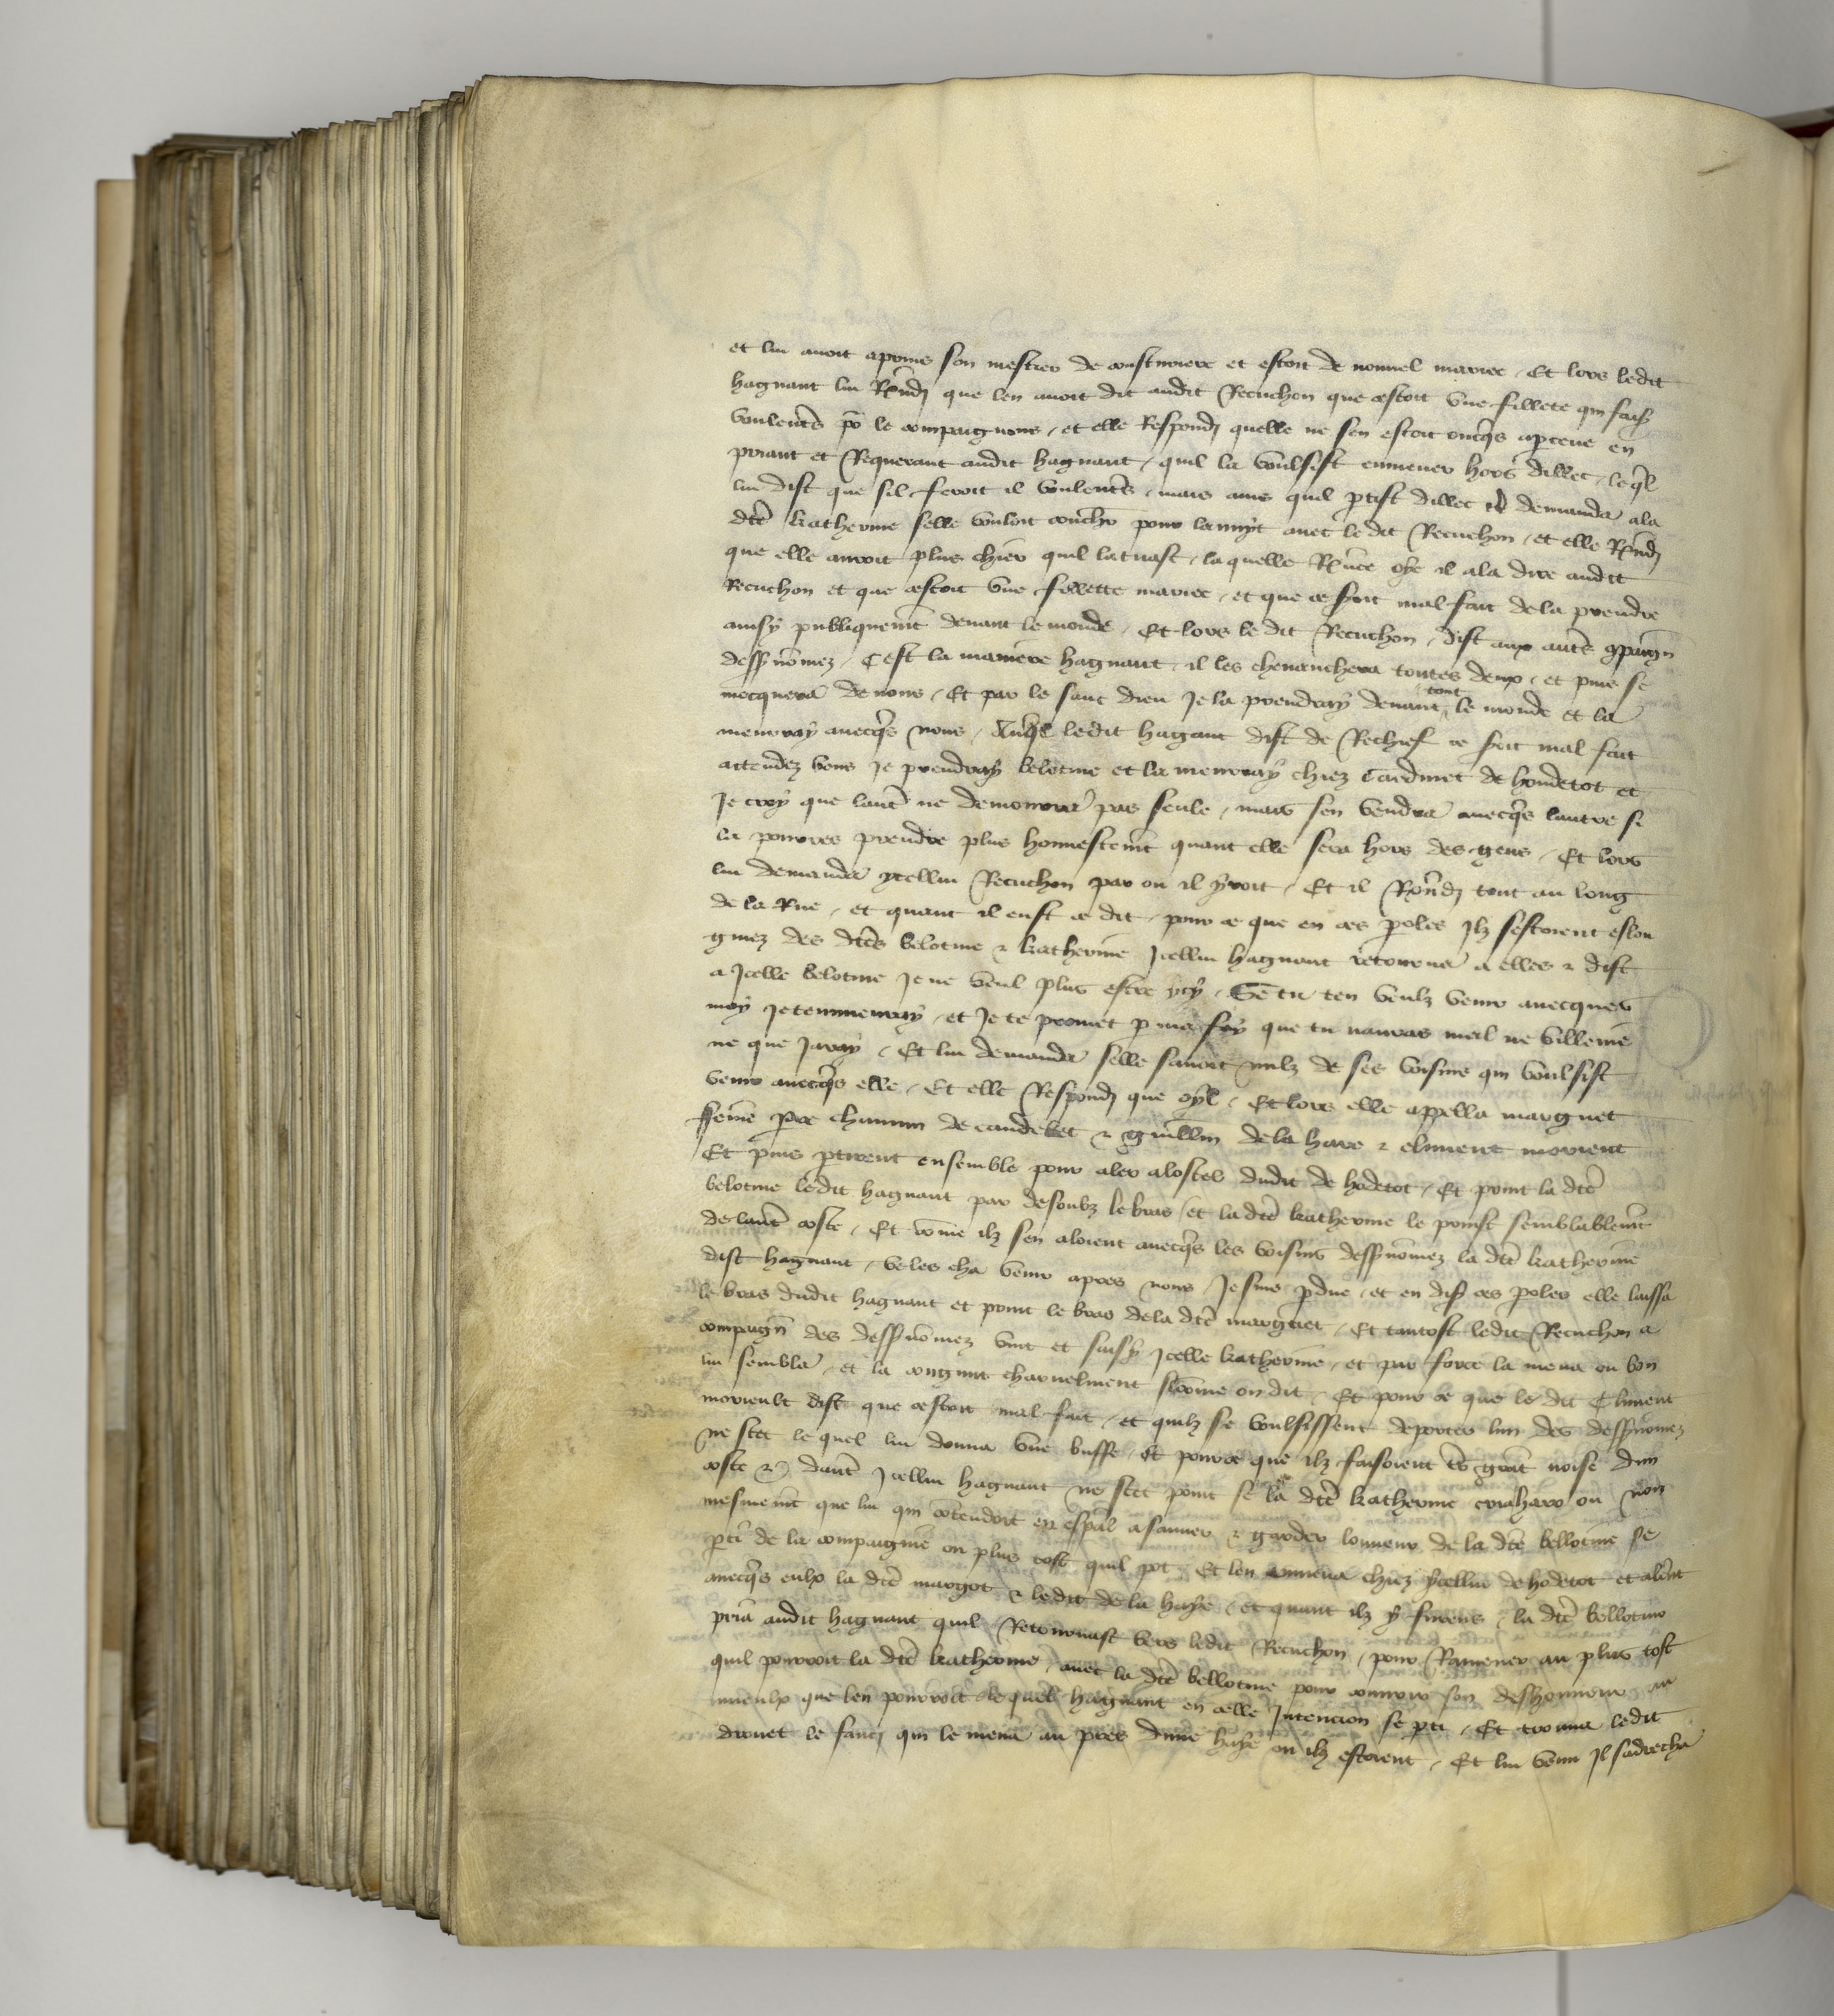 et lui avoit aprins son mestier de cousturiere et estoit de nouvel mariee / Et lors ledit
hagnant lui Rendi que len avoit dit audit Recuchon que cestoit une fillete qui fais
voulentes po le compaignons / et elle Respondi quelle ne sen estoit oncqs apceue en
priant et Requerant audit hagnant / quil la voulsist enmener hors dillec / leql
lui dist que sil feroit il voulentes / mais ains quil ptist dillec il demanda ala
dce katherine selle vouloit couchr pour lanuyt avec le dit Recuchon / et elle Rndi
que elle auroit plus chier quil latuast / laquelle Rnce oye il ala dire audit
Recuchon et que cestoit une fillette mariee / et que ce seroit mal fait de la prendre
ainsy publiquemt devant le monde / Et lors le dit Recuchon / dist aux autes 9paign
dessnomez / Cest la maniere hagnant / il les chevauchera toutes deux / et puis se
mocquera de nous / Et par le sanc dieu Je la prendray devant tout le monde et la
menray avecqs nous / Auql ledit hagant dist de Rechief ce seroit mal fait
attendez vous je prendray belotine et la menrray chiez Cardinet de houdetot et
Je croy que laute ne demourra pas seule / mais sen vendra avecqs lautre si
la pourres prendre plus honnestemt quant elle sera hors des gens / Et lors
lui demanda ycellui Recuchon par ou il yroit / Et il Rondi tout au long
de la Rue / et quant il eust ce dit / pour ce que en ces poles Ilz sestoient eslon
gniez des dces belotine & katherine Icellui hagnant retourna a elles & dist
a Icelle belotine Je ne veul plus estre ycy / Se tu ten veulz venir avecques
moy Je tenmenray / et Je te promet p ma foy que tu nauras mal ne villenie
ne que Jaray / Et lui demanda selle savoit nulz de ses voisins qui voulsist
venir avecqs elle / Et elle Respondi que oyl / Et lors elle appella marguet
feme Pre chinnin de caudebet & guillin dela hare & climent morient
Et puis ptirent ensemble pour aler alostel dudit de hodetot / Et print la dce
belotine ledit hagnant par desoubz le bras / et la dce katherine le prinst semblablemt
de laute coste / Et come ilz sen aloient avecqs les voisins dessnomez la dce katherine
dist hagnant / ve les cha venir apres nous / Je suis pdue / et en dis ces poles elle laissa
le bras dudit hagnant et print le bras dela dce marguet / Et tantost ledit Recuchon a
compaign des dessnomez vint et saisy Icelle katherine / et par force la mena ou bon
lui sembla / et la congnut charnelment si come on dit / Et pour ce que le dit Climent
morieult dist que cestoit mal fait / et quilz se voulsissent deporter lun des dessnomez
ne scet le quel lui donna une buffe / Et pour ce que ilz faisoient tes grant noise dun
coste & dautre Icellui hagnant ne scet point se la dce katherine cria haro ou non
mesmemt que lui qui entendoit en espal asauver & garder lonneur de la dce bellotine se
pti de la compaignie ou plus tost quil pot / Et len anmena chiez ycellui de hodetot et alent
avecqs eulx la dce margot & ledit de la haye / et quant ilz y furent / la dce bellotine
pria audit hagnant quil Retournast vers ledit Recuchon / pour Ramener au plus tost
quil pourroit la dce katherine / avec la dce bellotine pour couvrir son deshonneur au
mieulx que len pourroit / le quel hagnant en celle Intencion se pti / Et trouva ledit
drouet le fauq qui le mena au pres dune haye ou ilz estoient / Et lui venu Il sadrecha